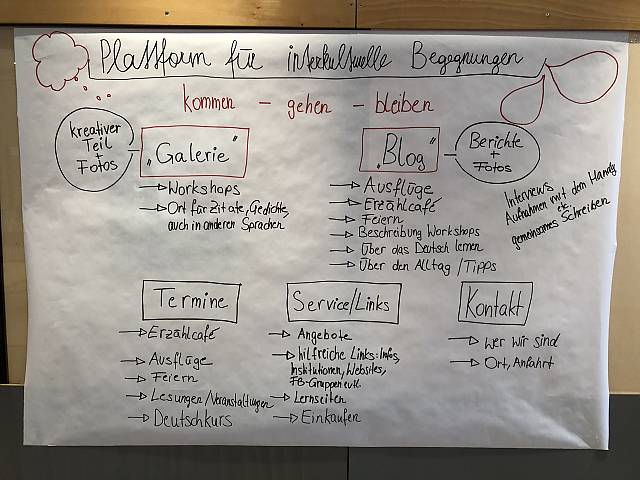 Plattform für interkulturelle Begegnungen
kommen - gehen - bleiben
kreativer
Teil
+
Fotos
„Galerie"
→ Workshops
→ Ort für Zitate, Gedichte,
auch in anderen Sprachen
„Blog"
Berichte
+
Fotos
→ Ausflüge
→ Erzählcafé
→ Feiern
→ Beschreibung Workshops
→ Über das Deutsch lernen
→ Über den Alltag / Tipps
Interviews
Aufnahmen mit dem Handy
etc.
gemeinsames Schreiben
Termine
→ Erzählcafé
→ Ausflüge
→ Feiern
→ Lesungen/Veranstaltungen
→ Deutschkurs
Service/Links
→ Angebote
→ hilfreiche Links: Infos,
Institutionen, Websites,
FB-Gruppen evtl.
→ Lernseiten
→ Einkaufen
Kontakt
→ wer wir sind
→ Ort, Anfahrt